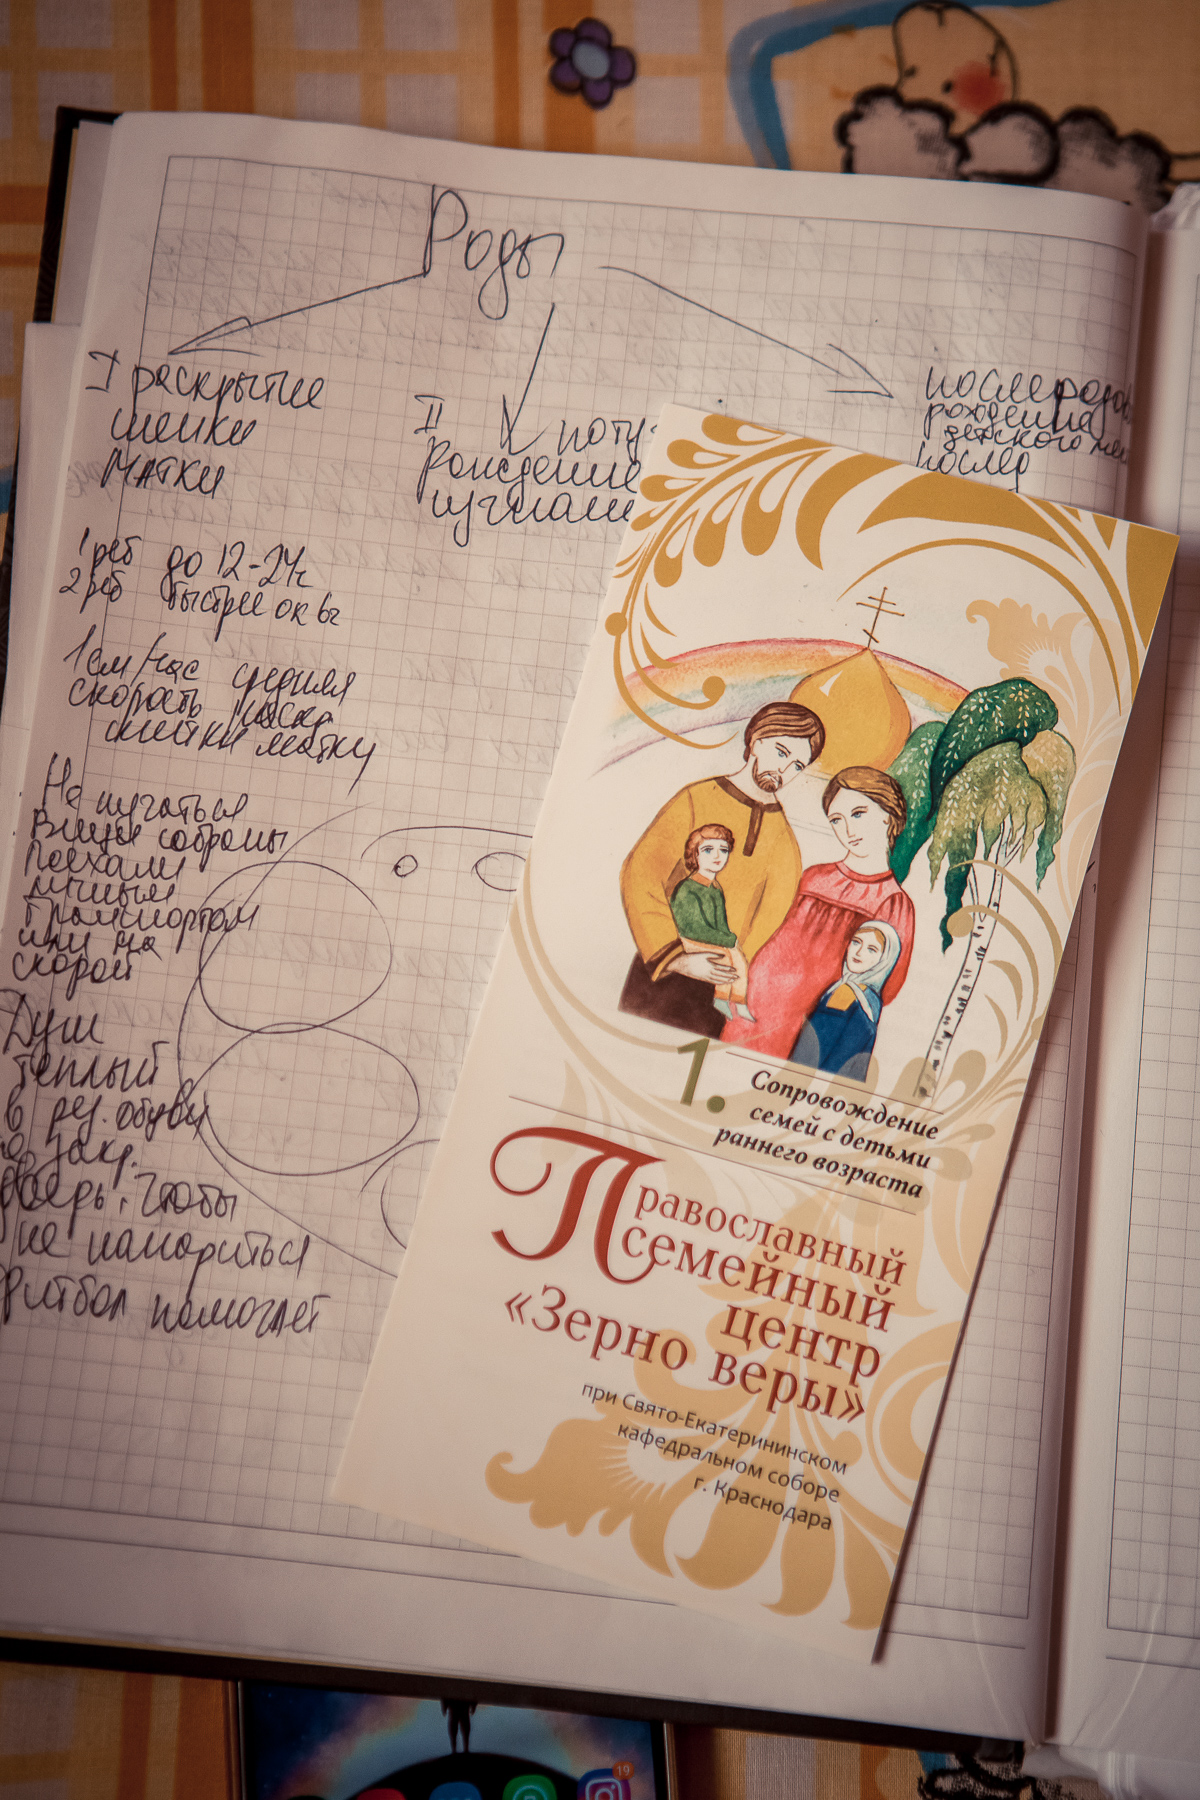 Роды
I раскрытие
шейки
матки
II поту
Рождение
послеродов
рождение
детского ме
послед
1 реб до 12-24ч
2 реб быстрее ок 6ч
1 см/час средняя
скорость раскр.
матки
Не пугаться
Вещи собраны
Поехали
личным
транспортом
или на
скорой
Душ
теплый
в рез. обуви
закр.
дверь, чтобы
не
фитбол помогает
1. Сопровождение
семей с детьми
раннего возраста
Православный
семейный
центр
«Зерно веры»
при Свято-Екатерининском
кафедральном соборе
г. Краснодара
19